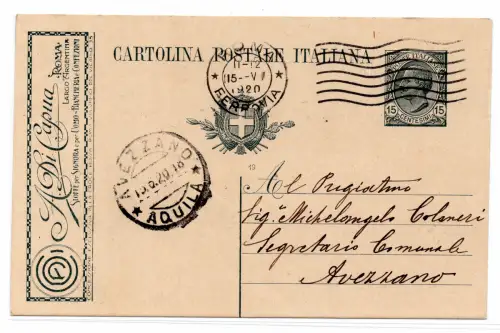 A. Di Capua - ROMA -
LARGO ARGENTINA
STOFFE PER SIGNORA E PER UOMO - BIANCHERIA - CONFEZIONI
CARTOLINA POSTALE ITALIANA
11-12
15 - V
1920
FERROVIA
15 CENTESIMI 15
AVEZZANO
20.18
AQUILA
19
Al Pregiatmo
Sig. Michelangelo Colaneri
Segretario Comunale
Avezzano